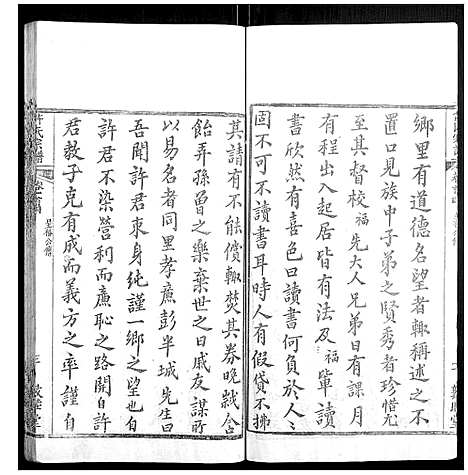 鄉里有道德名望者輒稱述之不
置口見族中子弟之賢秀者珍惜尤
至其督校福先大人兄弟日有課月
有程出入起居皆有法及福輩讀
書欣然有喜色曰讀書何負於人人
固不可不讀書耳時人有假貸不拂
其請有不能償輒焚其券晚歲含
飴弄孫魯之樂棄世之日戚友謀所
以易名者同里孝廉彭半城先生曰
吾聞許君束身純謹一鄉之望也自
許君不染營利而廉恥之路開自許
君教子克有成而義方之率謹自
許氏宗譜
公傳
敦睦堂